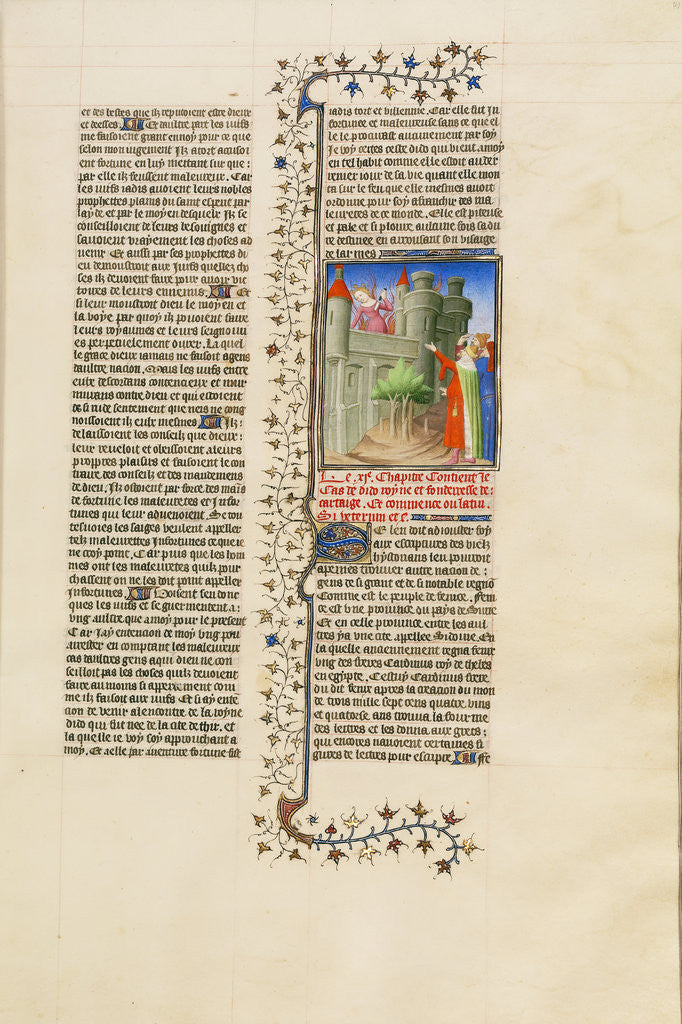 et des bestes que ilz reputoient estre dieux
et deesses. Et daultre part les iuifs
me faisoient grant ennoy pour ce que
selon mon iugement ilz a tort accusoi
ent fortune en luy mettant sur que :
par elle ilz feussent maleureux. Car
les iuifs iadis auoient leurs nobles
prophettes plains du saint esperit par
layde et par le moyen desquelz ilz se
conseilloient de leurs besoingnes et
sauoient vrayement les choses ad
uenir. Et aussi par ses prophettes di
eu demoustroit aux iuifs quelles cho
ses ilz deuoient faire pour auoir vic
toires de leurs ennemis. Et
si leur moustroit dieu le moyen et
la voye par quoy ilz pouoient faire
leurs royaumes et leurs seignouri
es perpetuelement durer. La quel
le grace dieux iamais ne faisoit a gens
daultre nacion. Mais les iuifs entre
eulx descordans contencieux et mur
murans contre dieu et qui estoient
de si rude sentement que neis ne cong
noissoient ilz eulx mesmes. Ilz :
delaissoient les conseilz que dieux :
leur reueloit et obeissoient a leurs
propres plaisirs et faisoient le con
traire des conseilz et des mandemens
de dieu. Ilz ostoient par force des mais
de fortune les maleuretez et infor
tunes qui leur aduenoient. Se tou
tesuoies les saiges veulent appeller
telz maleuretez infortunes ce que ie
ne croy point. Car puis que les hom
mes ont les maleuretez quilz pour
chassent on ne les doit point appeller
infortunes. Voisent sen donc
ques les iuifs et se guermentent a :
vng aultre que a moy pour le present
Car iay entencion de moy vng pou
arrester en comptant les maleureux
cas daultres gens a qui dieu ne con
seilloit pas les choses quilz deuoient
faire au moins si apertement com
me il faisoit aux iuifs. Et si ay enten
cion de venir alencontre de la royne
dido qui fut nee de la cite de thir. et
la quelle ie voy soy approuchant a
moy. Et a elle par auenture fortune fist
iadis tort et vilennie. Car elle fut in
fortunee et maleureuse sans ce que el
le le procurast aucunement par soy
Je voy certes ceste dido qui vient a moy
en tel habit comme elle estoit au der
renier iour de sa vie quant elle mon
ta sur le feu que elle mesmes auoit
ordonne pour soy afranchir des ma
leuretez de ce monde. Elle est piteuse
et pale et si ploure aulcune fois sa du
re destinee en arrousant son visaige
de larmes
Le .xi.e Chapitre Contient le
Cas de dido royne et fonderesse de :
cartaige. Et commence ou latin.
Si veterum etc.
Se len doit adiouster foy
aux escriptures des vielz
hystoriens leu pourroit
a peines trouuer autre nacion de :
gens de si grant et de si notable regnon
Comme est le peuple de fenice. Feni
ce est vne prouince ou pays de Surie
Et en celle prouince entre les aul
tres y a vne cite appellee Sidoine. En
la quelle anciennement regna fenix
vng des freres Cadinus roy de thebes
en egypte. Cestuy Cadinus frere
du dit fenix apres la creacion du mon
de trois mille sept cens quatre vins
et quatorze ans trouua la fourme
des lettres et les donna aux grecs :
qui encores nauoient certaines fi
gures de lettres pour escripre. Fe